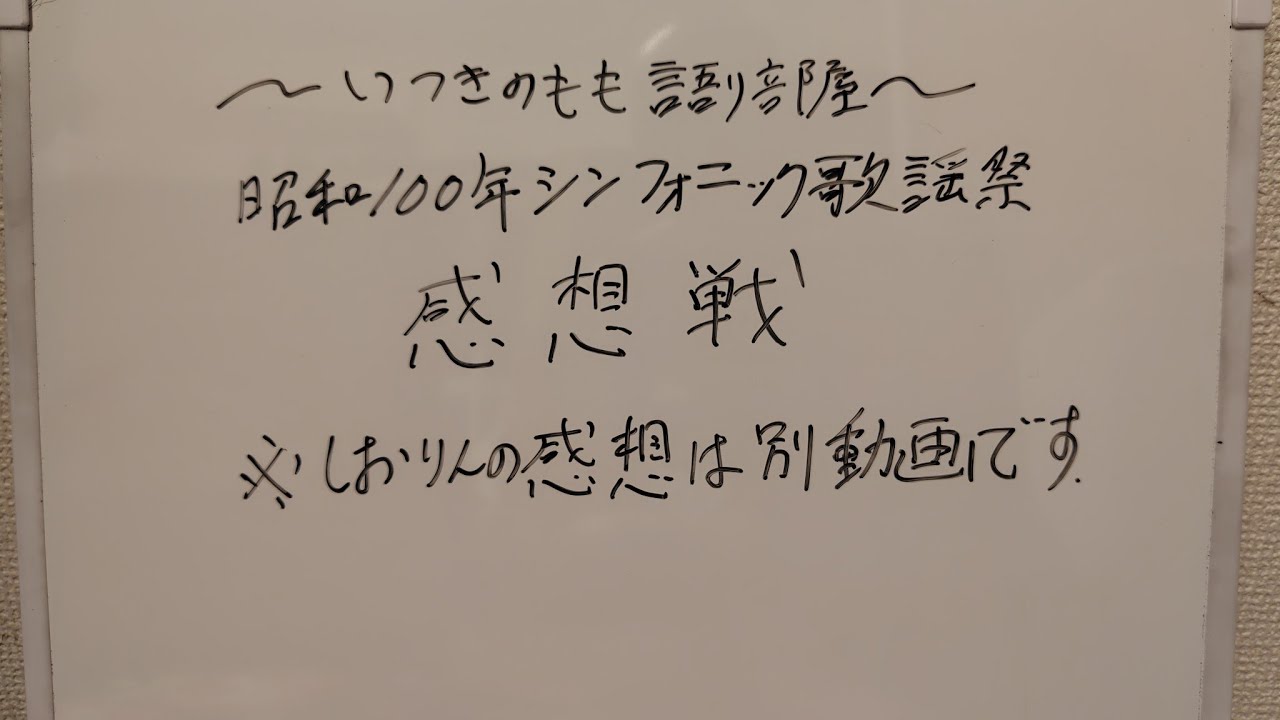 ～いつきのもも語り部屋～
昭和100年シンフォニック歌謡祭
感想戦
※しおりんの感想は別動画です.